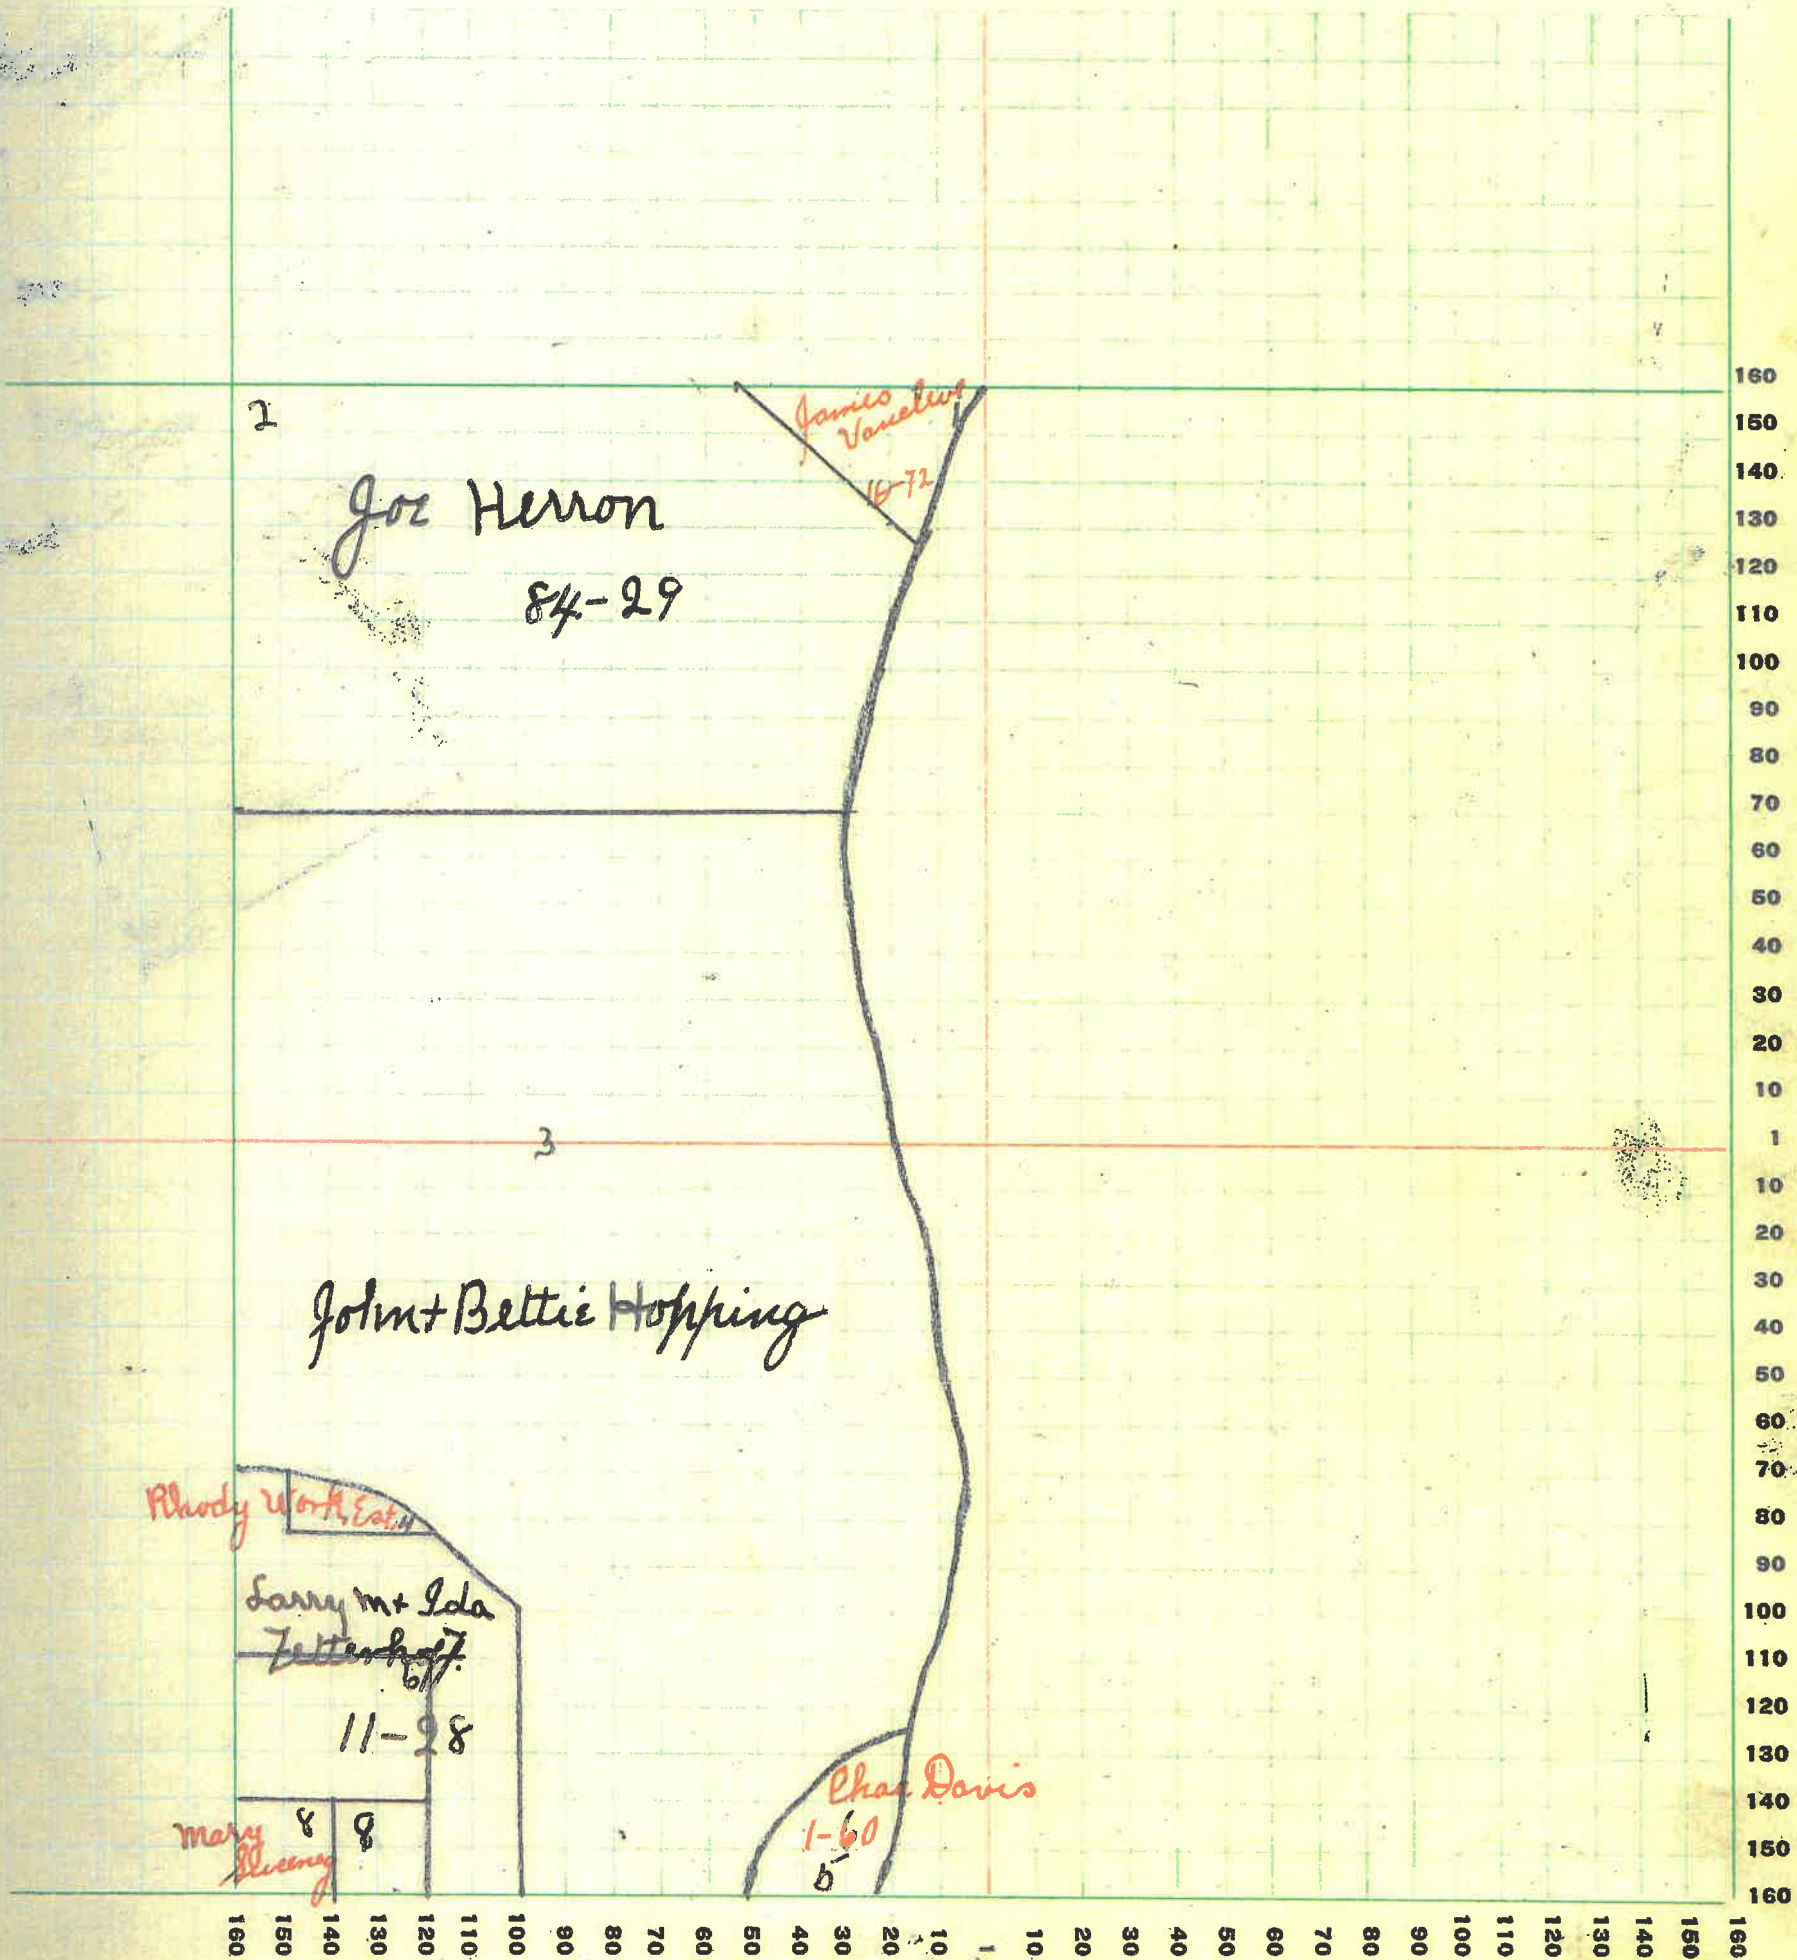 2
James
16-72
Joe Herron
84-29
3
John + Bettie Hopping
Rhody Work, Est. 4
Larry M + Ida
Zetterhoff.
6
11-28
Chas Davis
1-60
5
Mary
8
8
Sweeney
160
150
140
130
120
110
100
90
80
70
60
50
40
30
20
10
1
10
20
30
40
50
60
70
80
90
100
110
120
130
140
150
160
160 150 140 130 120 110 100 90 80 70 60 50 40 30 20 10 1 10 20 30 40 50 60 70 80 90 100 110 120 130 140 150 160